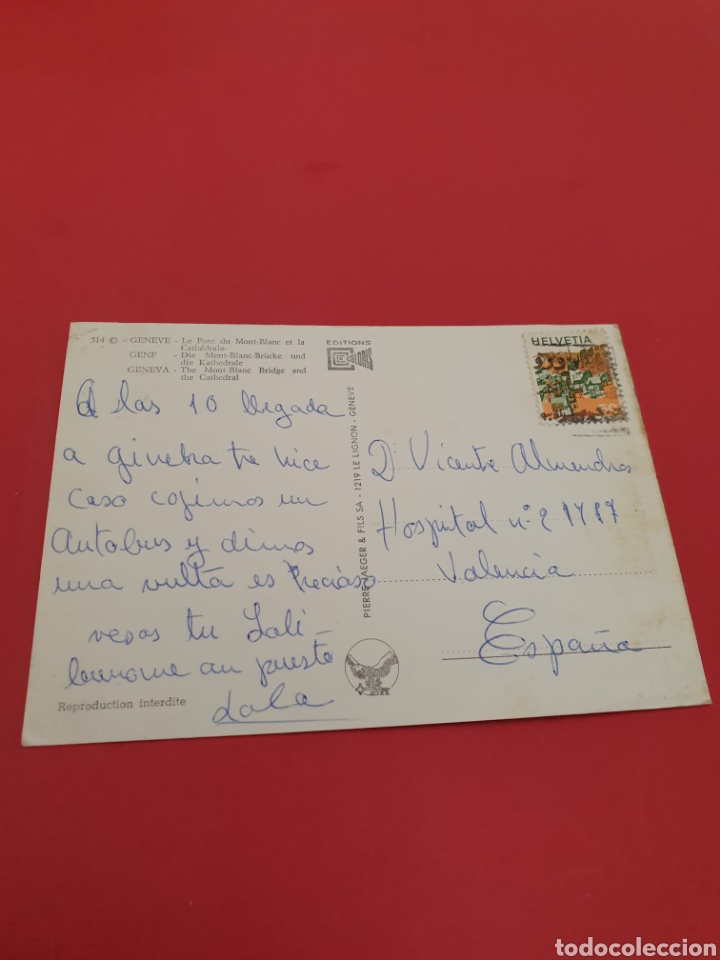 314 © - GENÈVE - Le Pont du Mont-Blanc et la
Cathédrale
GENF - Die Mont-Blanc-Brücke und
die Kathedrale
GENEVA - The Mont-Blanc Bridge and
the Cathedral
EDITIONS
HELVETIA
A las 10 llegada
a ginebra te hice
caso cojimos un
Autobus y dimos
una vulta es Precioso
vesos tu Loli
buenome an puesto
Lola
Reproduction interdite
PIERRE JAEGER & FILS SA - 1219 LE LIGNON - GENÈVE
D Vicente Almendros
Hospital nº 2
Valencia
España
todocoleccion